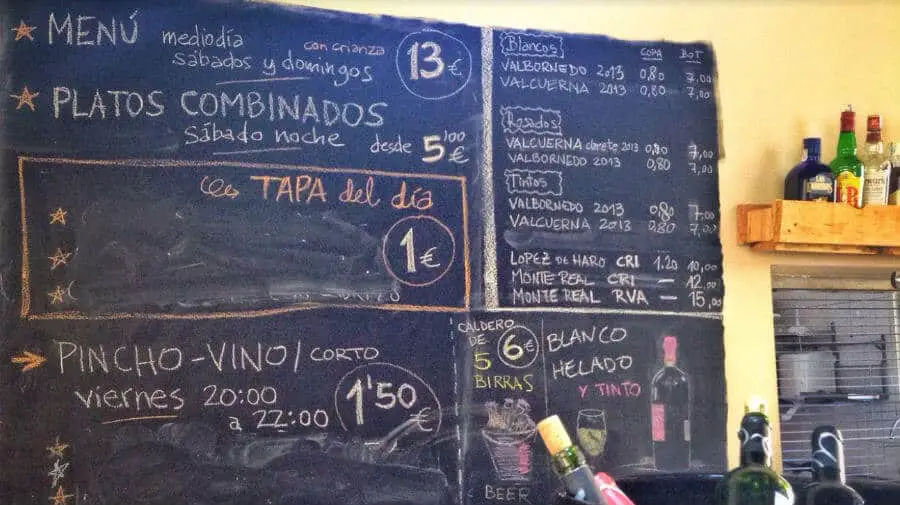 MENÚ mediodía con crianza
sábados y domingos 13€
PLATOS COMBINADOS
sábado noche desde 5'00€
TAPA del día
1€
PINCHO-VINO/CORTO
viernes 20:00
a 22:00 1'50€
Blancos COPA BOT
VALBORNEDO 2013 0,80 7,00
VALCUERNA 2013 0,80 7,00
Rosados
VALCUERNA clarete 2013 0,80 7,00
VALBORNEDO 2013 0,80 7,00
Tintos
VALBORNEDO 2013 0,80 7,00
VALCUERNA 2013 0,80 7,00
LOPEZ DE HARO CRI 1.20 10,00
MONTE REAL CRI — 12,00
MONTE REAL RVA — 15,00
CALDERO
DE 6€
5
BIRRAS
BEER
BLANCO
HELADO
Y TINTO